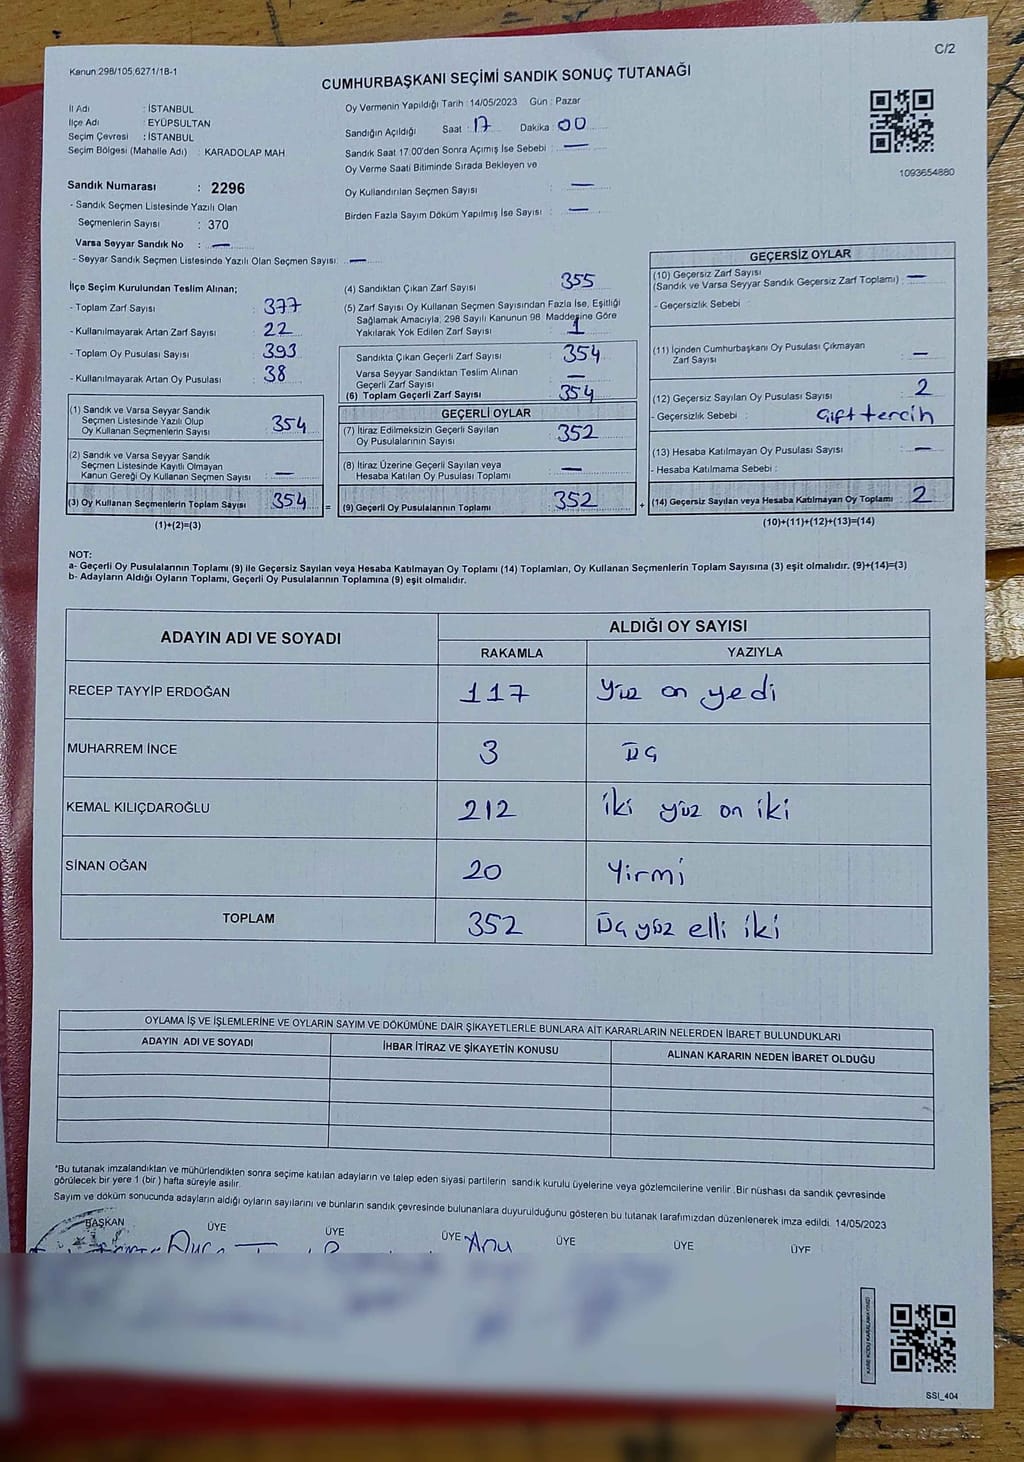 C/2
Kanun 298/105,6271/18-1
CUMHURBAŞKANI SEÇİMİ SANDIK SONUÇ TUTANAĞI
İl Adı : İSTANBUL
İlçe Adı : EYÜPSULTAN
Seçim Çevresi : İSTANBUL
Seçim Bölgesi (Mahalle Adı) : KARADOLAP MAH
Oy Vermenin Yapıldığı Tarih : 14/05/2023 Gün : Pazar
Sandığın Açıldığı Saat : 17 Dakika : 00
Sandık Saat 17:00'den Sonra Açımış İse Sebebi : —
Oy Verme Saati Bitiminde Sırada Bekleyen ve
Oy Kullandırılan Seçmen Sayısı : —
Birden Fazla Sayım Döküm Yapılmış İse Sayısı : —
1093654880
Sandık Numarası : 2296
- Sandık Seçmen Listesinde Yazılı Olan
Seçmenlerin Sayısı : 370
Varsa Seyyar Sandık No : —
- Seyyar Sandık Seçmen Listesinde Yazılı Olan Seçmen Sayısı: —
İlçe Seçim Kurulundan Teslim Alınan;
- Toplam Zarf Sayısı : 377
- Kullanılmayarak Artan Zarf Sayısı : 22
- Toplam Oy Pusulası Sayısı : 393
- Kullanılmayarak Artan Oy Pusulası : 38
(1) Sandık ve Varsa Seyyar Sandık
Seçmen Listesinde Yazılı Olup
Oy Kullanan Seçmenlerin Sayısı : 354
(2) Sandık ve Varsa Seyyar Sandık
Seçmen Listesinde Kayıtlı Olmayan
Kanun Gereği Oy Kullanan Seçmen Sayısı : —
(3) Oy Kullanan Seçmenlerin Toplam Sayısı : 354
(1)+(2)=(3)
(4) Sandıktan Çıkan Zarf Sayısı : 355
(5) Zarf Sayısı Oy Kullanan Seçmen Sayısından Fazla İse, Eşitliği
Sağlamak Amacıyla, 298 Sayılı Kanunun 98. Maddesine Göre
Yakılarak Yok Edilen Zarf Sayısı : 1
Sandıkta Çıkan Geçerli Zarf Sayısı : 354
Varsa Seyyar Sandıktan Teslim Alınan
Geçerli Zarf Sayısı : —
(6) Toplam Geçerli Zarf Sayısı : 354
GEÇERLİ OYLAR
(7) İtiraz Edilmeksizin Geçerli Sayılan
Oy Pusulalarının Sayısı : 352
(8) İtiraz Üzerine Geçerli Sayılan veya
Hesaba Katılan Oy Pusulası Toplamı : —
= (9) Geçerli Oy Pusulalarının Toplamı : 352
GEÇERSİZ OYLAR
(10) Geçersiz Zarf Sayısı
(Sandık ve Varsa Seyyar Sandık Geçersiz Zarf Toplamı) : —
- Geçersizlik Sebebi :
(11) İçinden Cumhurbaşkanı Oy Pusulası Çıkmayan
Zarf Sayısı : —
(12) Geçersiz Sayılan Oy Pusulası Sayısı : 2
- Geçersizlik Sebebi : Çift tercih
(13) Hesaba Katılmayan Oy Pusulası Sayısı : —
- Hesaba Katılmama Sebebi :
+ (14) Geçersiz Sayılan veya Hesaba Katılmayan Oy Toplamı : 2
(10)+(11)+(12)+(13)=(14)
NOT:
a- Geçerli Oy Pusulalarının Toplamı (9) ile Geçersiz Sayılan veya Hesaba Katılmayan Oy Toplamı (14) Toplamları, Oy Kullanan Seçmenlerin Toplam Sayısına (3) eşit olmalıdır. (9)+(14)=(3)
b- Adayların Aldığı Oyların Toplamı, Geçerli Oy Pusulalarının Toplamına (9) eşit olmalıdır.
ADAYIN ADI VE SOYADI ALDIĞI OY SAYISI
RAKAMLA YAZIYLA
RECEP TAYYİP ERDOĞAN 117 Yüz on yedi
MUHARREM İNCE 3 Üç
KEMAL KILIÇDAROĞLU 212 iki yüz on iki
SİNAN OĞAN 20 Yirmi
TOPLAM 352 Üç yüz elli iki
OYLAMA İŞ VE İŞLEMLERİNE VE OYLARIN SAYIM VE DÖKÜMÜNE DAİR ŞİKAYETLERLE BUNLARA AİT KARARLARIN NELERDEN İBARET BULUNDUKLARI
ADAYIN ADI VE SOYADI İHBAR İTİRAZ VE ŞİKAYETİN KONUSU ALINAN KARARIN NEDEN İBARET OLDUĞU
*Bu tutanak imzalandıktan ve mühürlendikten sonra seçime katılan adayların ve talep eden siyasi partilerin sandık kurulu üyelerine veya gözlemcilerine verilir. Bir nüshası da sandık çevresinde
görülecek bir yere 1 (bir) hafta süreyle asılır.
Sayım ve döküm sonucunda adayların aldığı oyların sayılarını ve bunların sandık çevresinde bulunanlara duyurulduğunu gösteren bu tutanak tarafımızdan düzenlenerek imza edildi. 14/05/2023
BAŞKAN ÜYE ÜYE ÜYE ÜYE ÜYE ÜYE
SSI_404